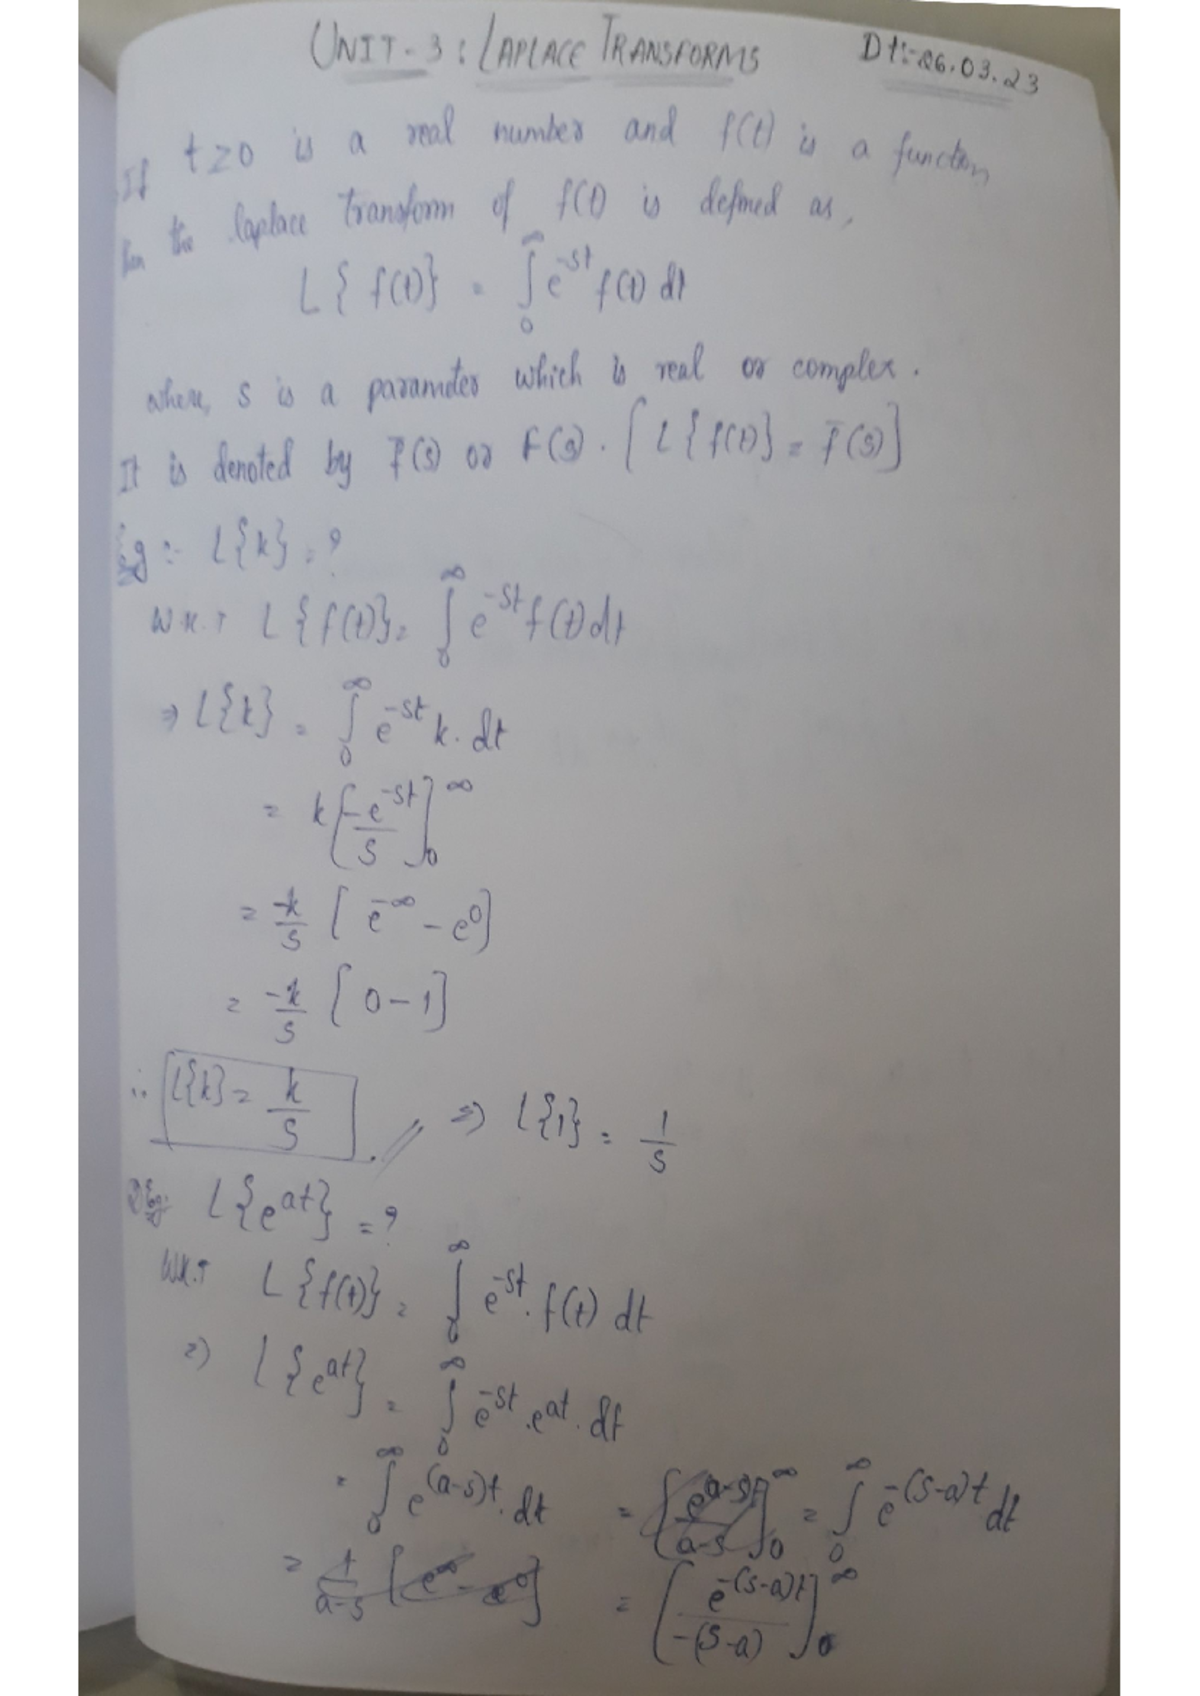 UNIT-3: LAPLACE TRANSFORMS Dt:-26.03.23
If t≥0 is a real number and f(t) is a function
then the laplace transform of f(t) is defined as,
L{f(t)} = ∫₀^∞ e^-st f(t) dt
where, s is a parameter which is real or complex.
It is denoted by f̄(s) or F(s). [L{f(t)} = f̄(s)]
Eg:- L{k} = ?
W.K.T L{f(t)} = ∫₀^∞ e^-st f(t) dt
⇒ L{k} = ∫₀^∞ e^-st k. dt
= k[-e^-st/s]₀^∞
= -k/s [e^-∞ - e^0]
= -k/s [0-1]
∴ L{k} = k/s // ⇒ L{1} = 1/s
2) Eg: L{e^at} = ?
W.K.T L{f(t)} = ∫₀^∞ e^-st. f(t) dt
⇒ L{e^at} = ∫₀^∞ e^-st. e^at. dt
= ∫₀^∞ e^(a-s)t. dt = [e^(a-s)t/(a-s)]₀^∞ = ∫₀^∞ e^-(s-a)t dt
= 1/(a-s) [e^∞ - e^0] = [e^-(s-a)t/-(s-a)]₀^∞